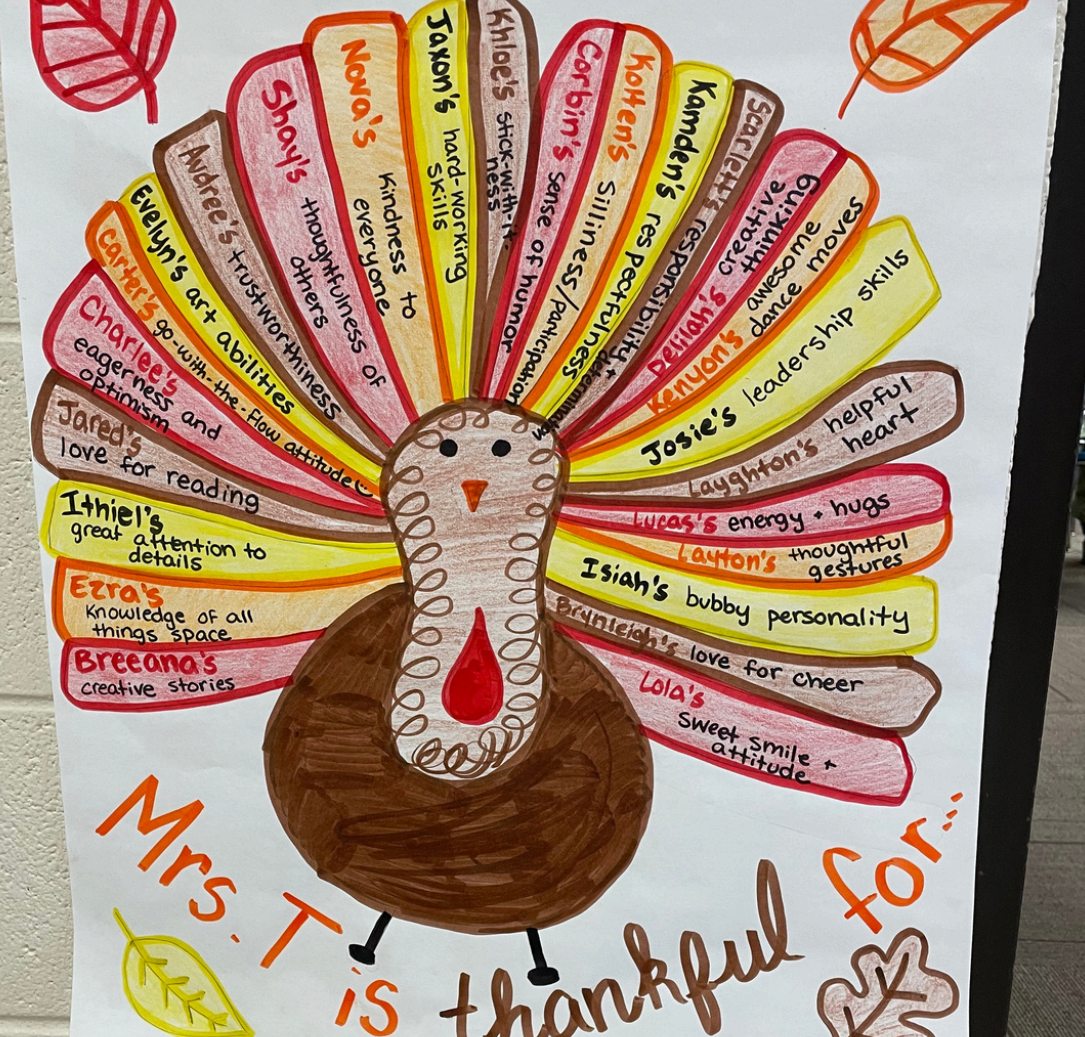 Breeana's
creative stories
Ezra's
Knowledge of all
things space
Ithiel's
great attention to
details
Jared's
love for reading
Charlee's
eagerness and
optimism
Carter's go-with-the-flow attitude
Evelyn's art abilities
Audree's trustworthiness
Shay's thoughtfulness of
others
Nova's Kindness to
everyone
Jaxon's hard-working
skills
Khloe's stick-with-it-
ness
Corbin's sense of humor
Kolten's silliness/participation
Kamden's respectfulness
Scarlett's responsibility + determination
Delilah's creative
thinking
Kenyon's awesome
dance moves
Josie's leadership skills
Layghton's helpful
heart
Lucas's energy + hugs
Layton's thoughtful
gestures
Isiah's bubby personality
Brynleigh's love for cheer
Lola's
sweet smile +
attitude
Mrs. T is thankful for...